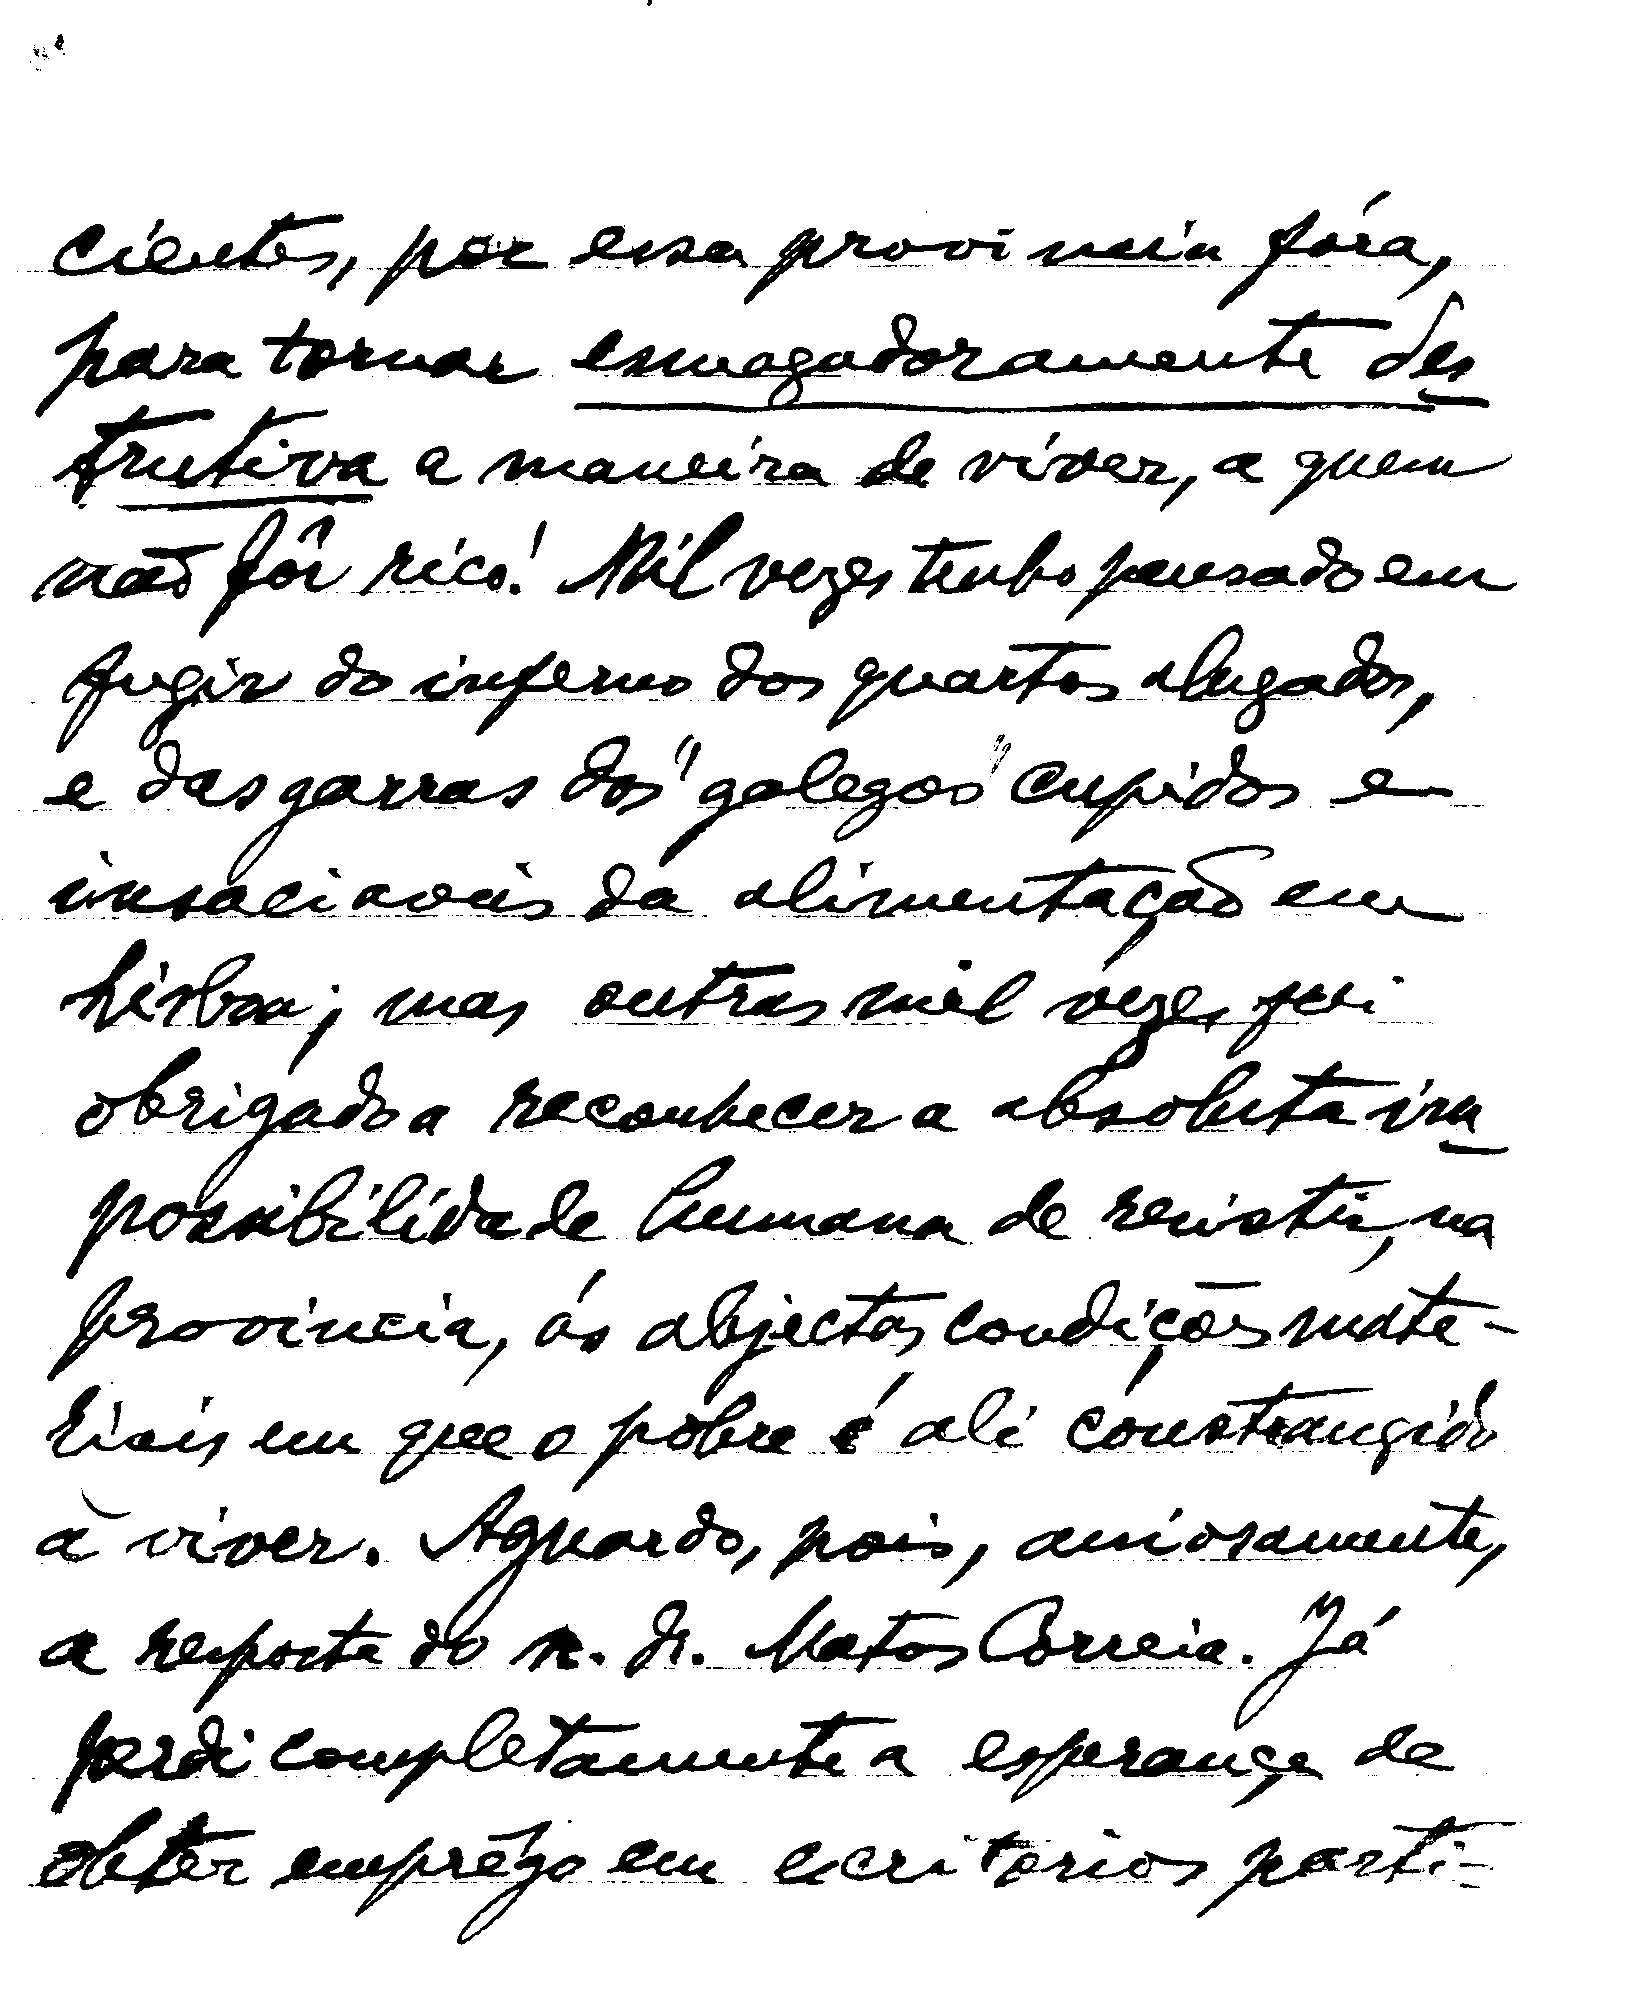 cientes, por essa provincia fóra,
para tornar esmagadoramente des
trutiva a maneira de viver, a quem
não fôr rico! Mil vezes tenho pensado em
fugir do inferno dos quartos alugados,
e das garras dos "galegos" cupidos e
insaciaveis da alimentação em
Lisboa; mas outras mil vezes fui
obrigado a reconhecer a absoluta im
possibilidade humana de resistir, na
provincia, ás abjectas condições mate-
riais em que o pobre é ali constrangido
a viver. Aguardo, pois, ansiosamente,
a resposta do sr. dr. Matos Correia. Já
perdi completamente a esperança de
obter emprêgo em escritorios parti-